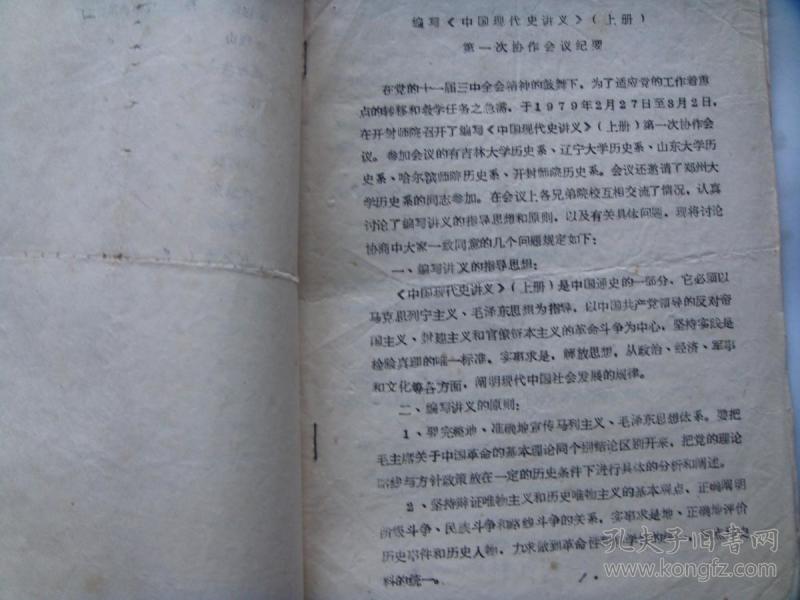 编写《中国现代史讲义》(上册)
第一次协作会议纪要
在党的十一届三中全会精神的鼓舞下，为了适应党的工作着重
点的转移和教学任务之急需，于1979年2月27日至3月2日，
在开封师院召开了编写《中国现代史讲义》(上册)第一次协作会
议。参加会议的有吉林大学历史系、辽宁大学历史系、山东大学历
史系、哈尔滨师院历史系、开封师院历史系。会议还邀请了郑州大
学历史系的同志参加。在会议上各兄弟院校互相交流了情况，认真
讨论了编写讲义的指导思想和原则，以及有关具体问题，现将讨论
协商中大家一致同意的几个问题规定如下：
一、编写讲义的指导思想：
《中国现代史讲义》(上册)是中国通史的一部分，它必须以
马克思列宁主义、毛泽东思想为指导，以中国共产党领导的反对帝
国主义、封建主义和官僚资本主义的革命斗争为中心，坚持实践是
检验真理的唯一标准，实事求是，解放思想，从政治、经济、军事
和文化等各方面，阐明现代中国社会发展的规律。
二、编写讲义的原则：
1、要完整地、准确地宣传马列主义、毛泽东思想体系。要把
毛主席关于中国革命的基本理论同个别结论区别开来，把党的理论
路线与方针政策放在一定的历史条件下进行具体的分析和阐述。
2、坚持辩证唯物主义和历史唯物主义的基本观点，正确阐明
阶级斗争、民族斗争和路线斗争的关系，实事求是地、正确地评价
历史事件和历史人物，力求做到革命性
料的统一。
孔夫子旧书网
kongfz.com